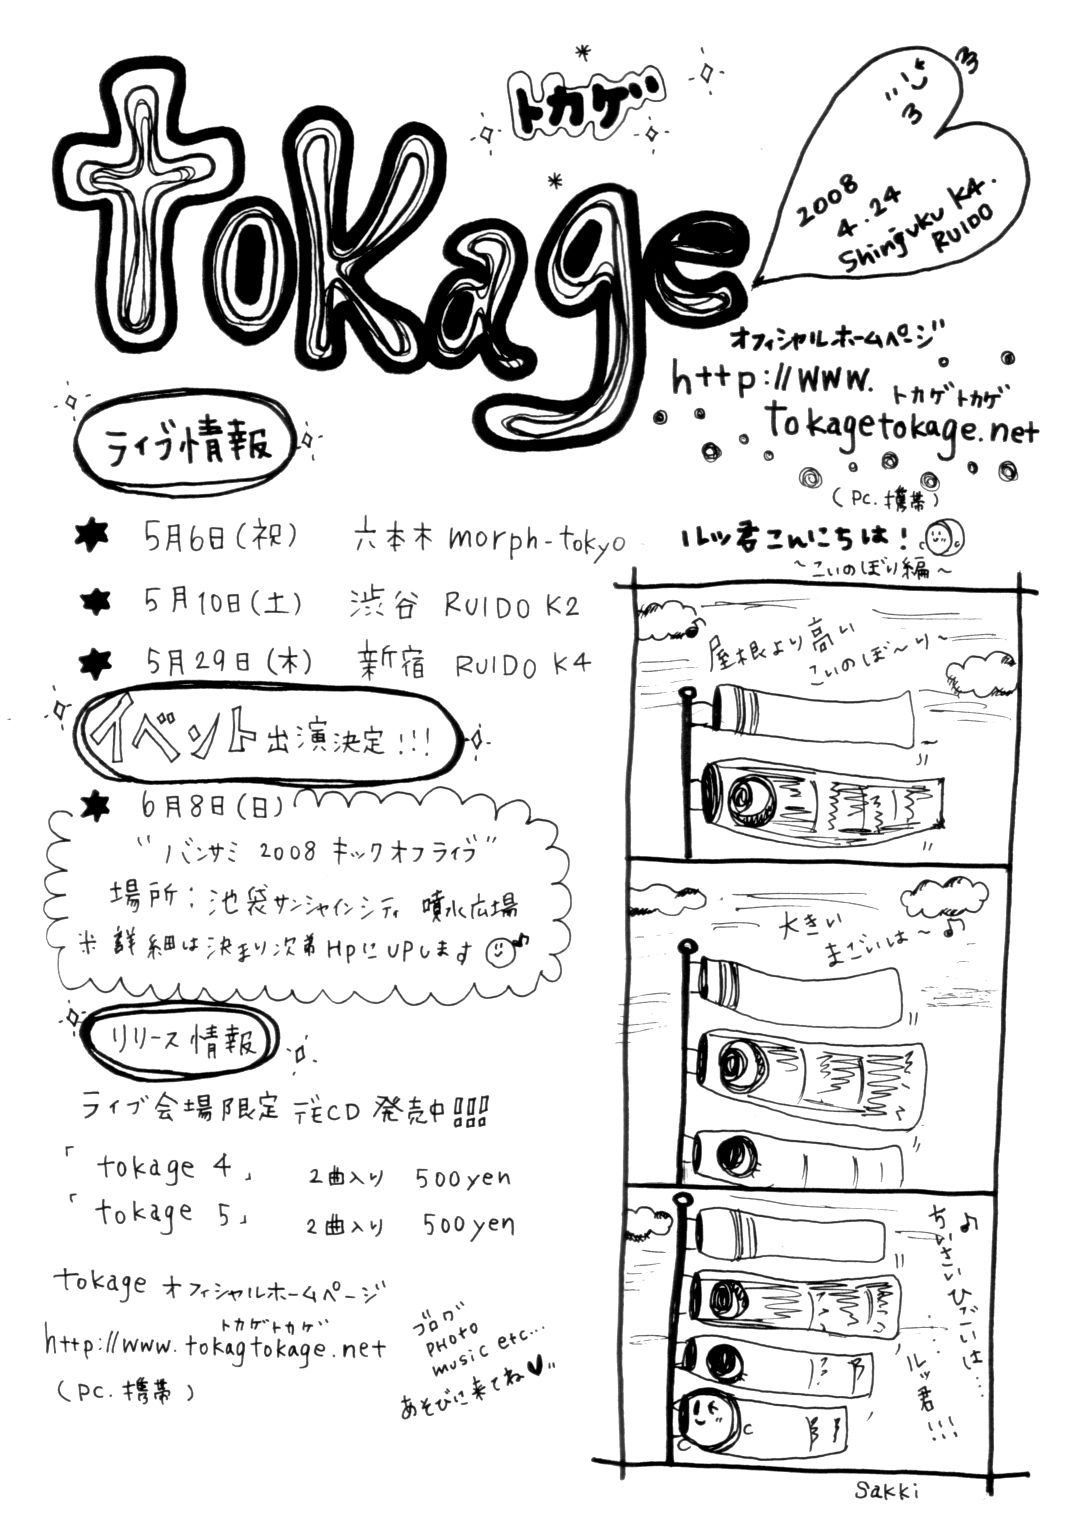 tokage
トカゲ
2008
4.24
Shinjuku K4.
RUIDO
オフィシャルホームページ
http://www.
トカゲトカゲ
tokagetokage.net
(PC.携帯)
ライブ情報
★ 5月6日(祝) 六本木 morph-tokyo
★ 5月10日(土) 渋谷 RUIDO K2
★ 5月29日(木) 新宿 RUIDO K4
イベント出演決定!!!
★ 6月8日(日)
"バンサミ 2008 キックオフライブ"
場所:池袋サンシャインシティ 噴水広場
※詳細は決まり次第HPにUPします
リリース情報
ライブ会場限定 デモCD 発売中!!!
「tokage 4」 2曲入り 500yen
「tokage 5」 2曲入り 500yen
tokage オフィシャルホームページ
トカゲトカゲ
http://www.tokagtokage.net
(PC.携帯)
ブログ
PHOTO
music etc...
あそびに来てね♥
ルッ君こんにちは!
~こいのぼり編~
屋根より高い
こいのぼ~り~
大きい
まごいは~♪
♪ちいさいひごいは...
....ルッ君!!!
Sakki